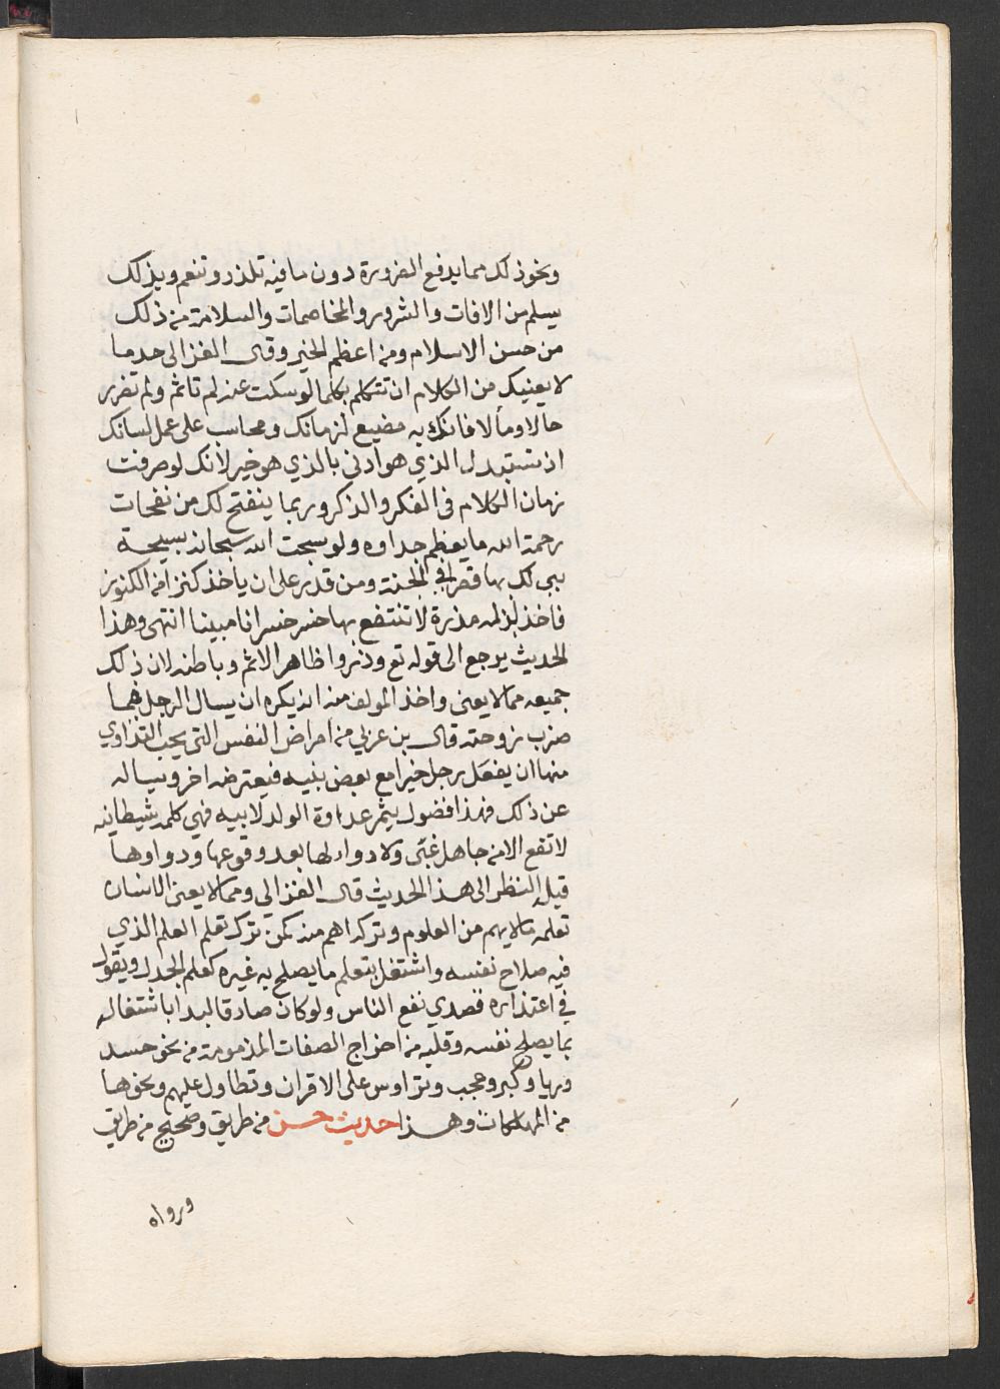 ونحو ذلك مما يدفع الضرورة دون ما فيه تلذذ وتنعم وبذلك
يسلم من الافات والشرور والمخاصمات والسلامة من ذلك
من حسن الاسلام ومن اعظم الخير وقال الغزالى حد ما
لا يعنيك من الكلام ان تتكلم بكلما لو سكت عنه لم تاثم ولم تضرر
حالا ومألا فانك به مضيع لزمانك ومحاسب على عمل لسانك
اذ تستبدل الذي هو ادنى بالذي هو خير لأنك لو صرفت
زمان الكلام فى الفكر والذكر وربما ينفتح لك من نفحات
رحمة الله ما يعظم جداوه ولو سبحت الله سبحانه بسبيحة
بنى لك بها قصرا في الجنة ومن قدر على ان يأخذ كنزا من الكنوز
فاخذ بدله مدرة لا تنتفع بها خسر خسرانا مبينا انتهى وهذا
الحديث يرجع الى قوله تع وذروا ظاهر الاثم وباطنه لان ذلك
جميعه مما لا يعنى واخذ المولف منه انه يكره ان يسال الرجل فيما
ضرب زوجته قال بن عربي من امراض النفس التى يجب التداوي
منها ان يفعل رجل خيرا مع بعض بنيه فيعترضه اخر ويساله
عن ذلك فهذا فضول يثمر عداوة الولد لابيه فهي كلمة شيطانيه
لا تقع الا من جاهل غبى ولا دواء لها بعد وقوعها ودواوها
قبل النظر الى هذا الحديث قال الغزالي ومما لا يعنى الانسان
تعلمه ما لا يهم من العلوم وتركه اهم منه كمن ترك تعلم العلم الذي
فيه صلاح نفسه واشتغل بتعلم ما يصلح به غيره كعلم الجدل ويقول
في اعتذاره قصدي نفع الناس ولو كان صادقا لبدا باشتغاله
بما يصلح نفسه وقلبه من اخراج الصفات المذمومة من نحو حسد
وريا وكبر وعجب وتراوس على الاقران وتطاول عليهم ونحوها
من المهلكات وهذا حديث حسن من طريق وصحيح من طريق
ورواه